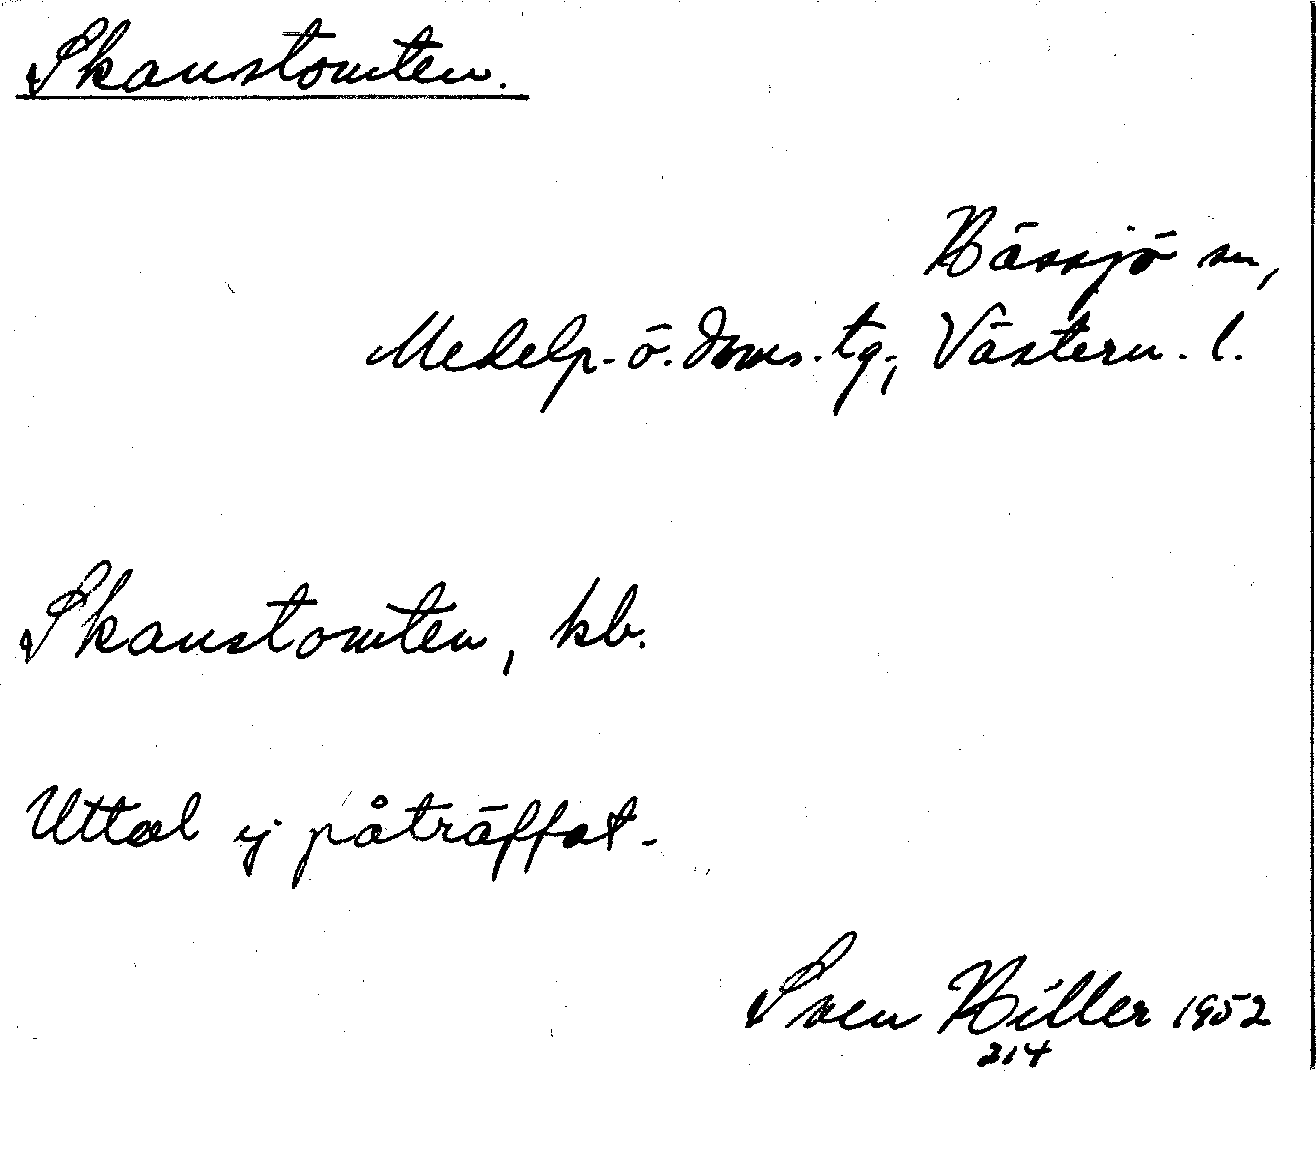 Skanstomten.
Hässjö sn,
Medelp. ö. doms. tg., Västern. l.
Skanstomten, kb.
Uttal ej påträffat.
Sven Hiller 1952
214